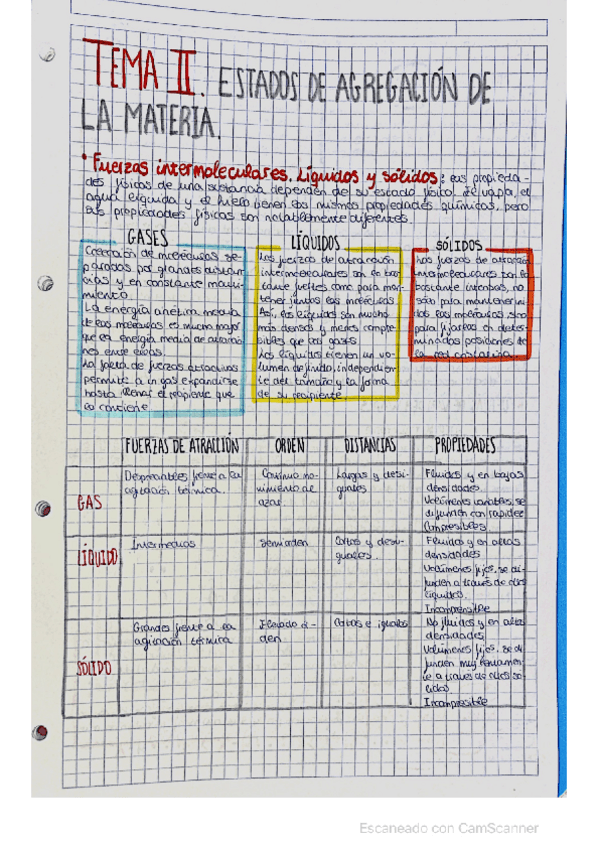 TEMA II. ESTADOS DE AGREGACIÓN DE
LA MATERIA.
• Fuerzas intermoleculares. Líquidos y sólidos: sus propieda-
des físicas de una sustancia dependen de su estado físico. El vapor, el
agua líquida y el hielo tienen las mismas propiedades químicas, pero
sus propiedades físicas son notablemente diferentes.
GASES
Colección de moléculas se-
paradas por grandes distan-
cias y en constante movi-
miento.
La energía cinética media
de las moléculas es mucho mayor
que la energía media de atraccio-
nes entre ellas.
La falta de fuerzas atractivas
permite a un gas expandirse
hasta llenar el recipiente que
lo contiene.
LÍQUIDOS
Las fuerzas de atracción
intermoleculares son lo bas-
tante fuertes como para man-
tener juntas las moléculas.
Así, los líquidos son mucho
más densos y menos compre-
sibles que los gases.
Los líquidos tienen un vo-
lumen definido, independien-
te del tamaño y la forma
de su recipiente.
SÓLIDOS
Las fuerzas de atracción
intermoleculares son lo
bastante intensas, no
sólo para mantener uni-
das las moléculas sino
para fijarlas en deter-
minadas posiciones de
la red cristalina.
FUERZAS DE ATRACCIÓN ORDEN DISTANCIAS PROPIEDADES
GAS
Despreciables frente a la
agitación térmica.
Continuo mo-
vimiento de
azar.
Largas y desi-
guales
Fluidos y en bajas
densidades
Volúmenes variables, se
difunden con rapidez
Compresibles
LÍQUIDO
Intermedias
Semiorden
Cortas y desi-
guales.
Fluidos y en altas
densidades
Volúmenes fijos, se di-
funden a través de otros
líquidos.
Incompresible
SÓLIDO
Grandes frente a la
agitación térmica
Elevado or-
den.
Cortas e iguales
No fluidos y en altas
densidades
Volúmenes fijos, se di-
funden muy lentamen-
te a través de otros só-
lidos
Incompresible
Escaneado con CamScanner